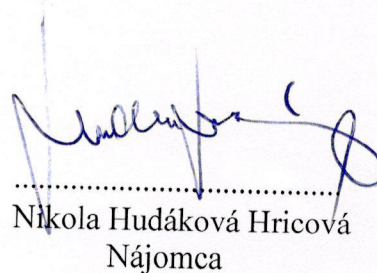 Nikola Hudáková Hricová
Nájomca